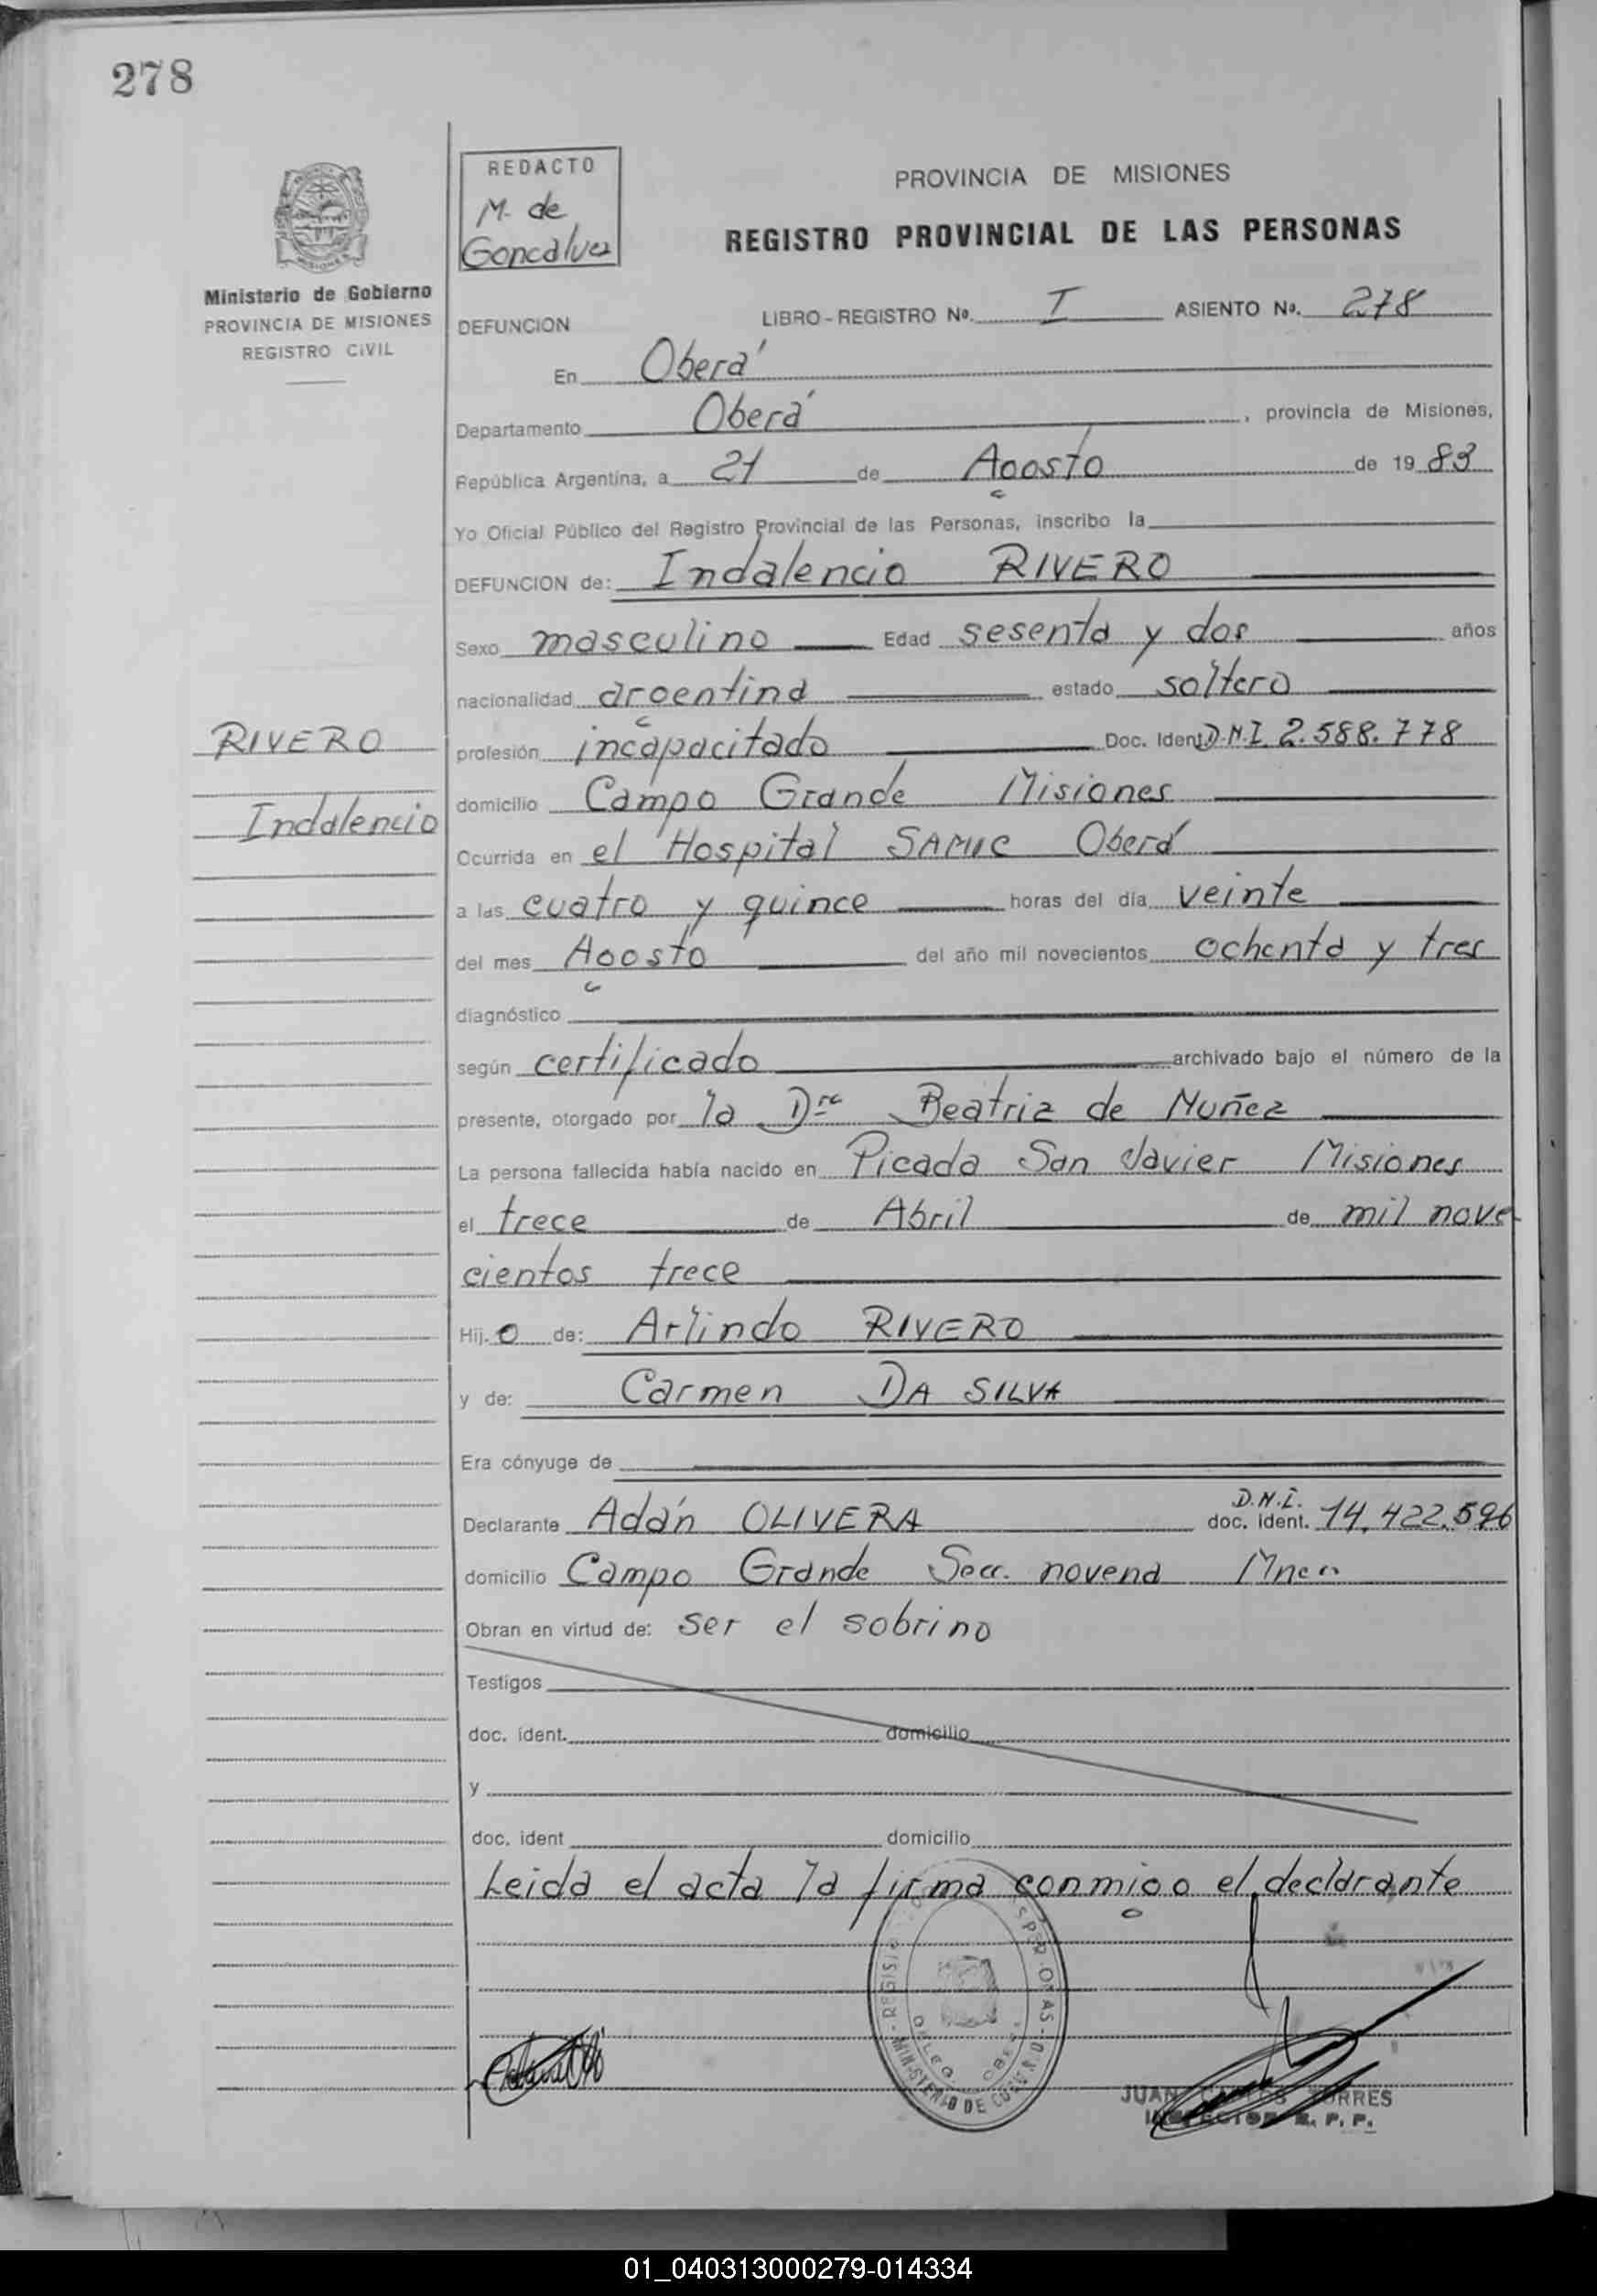 278
REDACTO
M. de
Goncalvez
PROVINCIA DE MISIONES
REGISTRO PROVINCIAL DE LAS PERSONAS
MISIONES
Ministerio de Gobierno
PROVINCIA DE MISIONES
REGISTRO CIVIL
DEFUNCION LIBRO - REGISTRO No. I ASIENTO No. 278
En Oberá
Departamento Oberá, provincia de Misiones,
República Argentina, a 21 de Agosto de 19 83
Yo Oficial Público del Registro Provincial de las Personas, inscribo la
DEFUNCION de: Indalencio RIVERO
Sexo masculino Edad sesenta y dos años
nacionalidad argentina estado soltero
RIVERO
Indalencio
profesión incapacitado Doc. Ident. D.N.I. 2.588.778
domicilio Campo Grande Misiones
Ocurrida en el Hospital SAMIC Oberá
a las cuatro y quince horas del día veinte
del mes Agosto del año mil novecientos ochenta y tres
diagnóstico
según certificado archivado bajo el número de la
presente, otorgado por la Dra Beatriz de Nuñez
La persona fallecida había nacido en Picada San Javier Misiones
el trece de Abril de mil nove
cientos trece
Hij o de: Arlindo RIVERO
y de: Carmen DA SILVA
Era cónyuge de
Declarante Adán OLIVERA D.N.I. doc. ident. 14.422.596
domicilio Campo Grande Secc. novena Mnes
Obran en virtud de: ser el sobrino
Testigos
doc. ident. domicilio
y
doc. ident domicilio
Leida el acta la firma conmigo el declarante
MINISTERIO DE
JUAN CARLOS TORRES
INSPECTOR R. P. P.
01_040313000279-014334